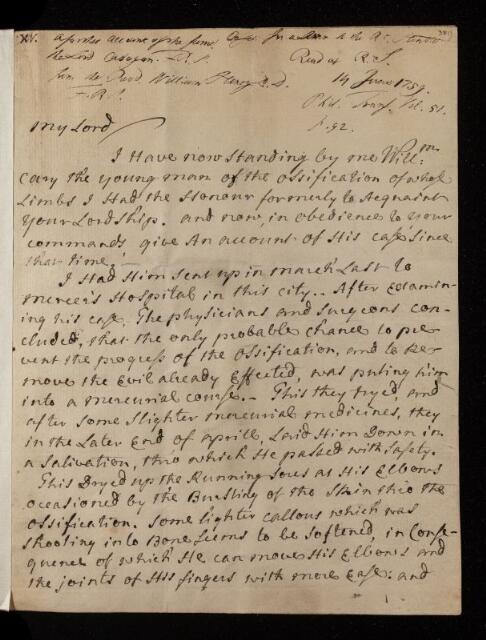 XV. A further account of the same Case in a letter to the Rt. Honble
the Lord Cadogan F.R.S. Read at R.S.
from the Revd William Henry D.D. 14 June 1759.
F.R.S. Phil. Trans. Vol. 51.
p. 92.
My Lord
I Have now standing by me Willm
Cary the young man of the Ossification of whose
Limbs I Had the Honour formerly to Acquaint
Your Lordship. and now, in obedience to Your
commands give An account of His case since
that time. –
I Had Him sent up in march Last to
mercer's Hospital in this city.. After Examin-
ing his case The physicians and surgeons con-
cluded, that the only probable chance to pre
vent the progress of the Ossification, and to Re
move the Evil already Effected, was puting him
into a mercurial course. – This they tryed, and
after some slighter mercurial medicines, they
in the Later End of aprill, Laid Him Down in
a Salivation, thro which He passed with safety.
This Dryed up the Running sores at His Elbows
occasioned by the Bursting of the Skin thro the
Ossification. some lighter callous which was
shooting into Bone seems to be softened, in Conse-
quence of which He can move His Elbows and
the joints of His fingers with more Ease. and